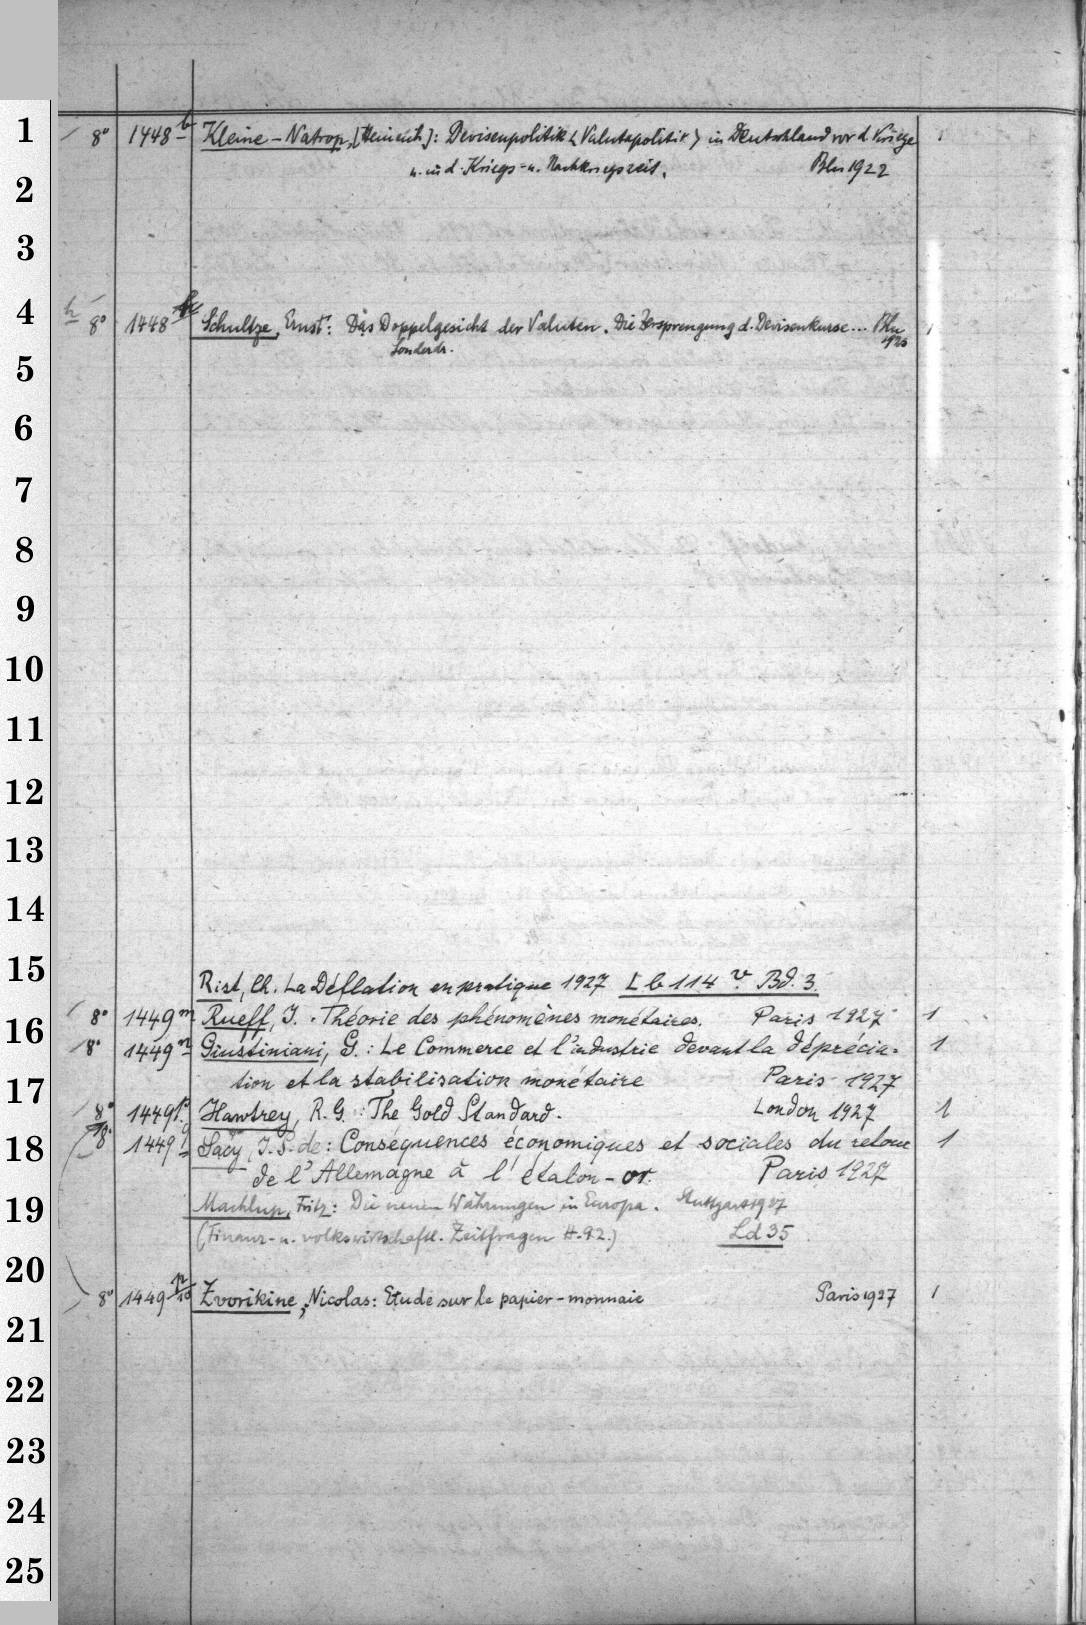 1 8° 1448 b Kleine-Natrop, [Heinrich]: Devisenpolitik <Valutapolitik> in Deutschland vor d. Kriege 1
u. in d. Kriegs- u. Nachkriegszeit. Bln 1922
2
3
4 8° 1448 Schultze, Ernst: Das Doppelgesicht der Valuten. Die Zersprengung d. Devisenkurse... Bln 1
Sonderdr. 1923
5
6
7
8
9
10
11
12
13
14
15
Rist, Ch. La Déflation en pratique 1927 L b 114 v. Bd. 3.
16 8° 1449 m Rueff, J. Théorie des phénomènes monétaires. Paris 1927 1
8° 1449 n Giustiniani, G.: Le Commerce et l'industrie devant la déprécia-
1
17 tion et la stabilisation monétaire Paris 1927
8° 1449 p Hawtrey, R. G.: The Gold Standard. London 1927 1
18 8° 1449 q Sacy, J. S. de: Conséquences économiques et sociales du retour 1
de l'Allemagne à l'étalon-or. Paris 1927
19 Machlup, Fritz: Die neuen Währungen in Europa. Stuttgart 1927
(Finanz- u. volkswirtschaftl. Zeitfragen H. 92.) Ld 35
20
8° 1449 p/10 Zvorikine, Nicolas: Etude sur le papier-monnaie Paris 1927 1
21
22
23
24
25